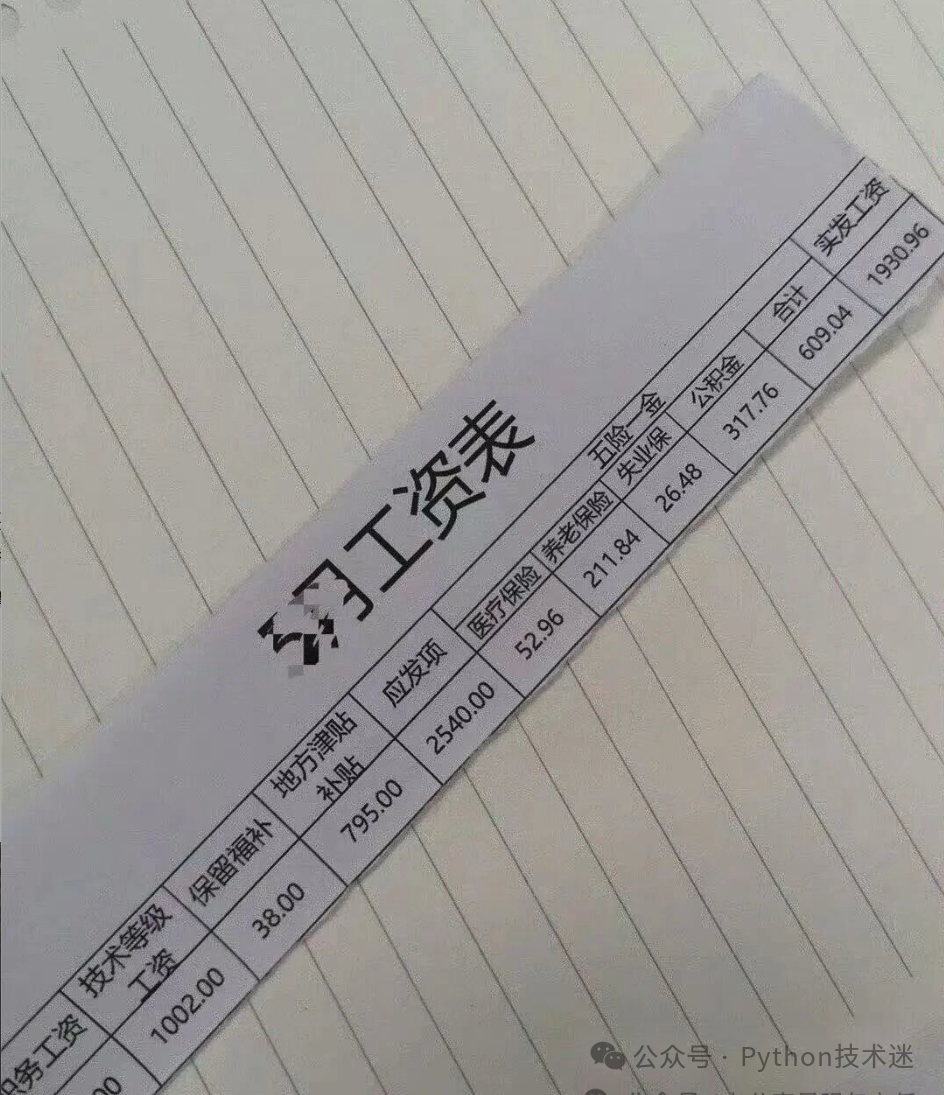 月工资表
职务工资 技术等级工资 保留福补 地方津贴补贴 应发项 五险一金 合计 实发工资
医疗保险 养老保险 失业保 公积金
00 1002.00 38.00 795.00 2540.00 52.96 211.84 26.48 317.76 609.04 1930.96
公众号·Python技术迷